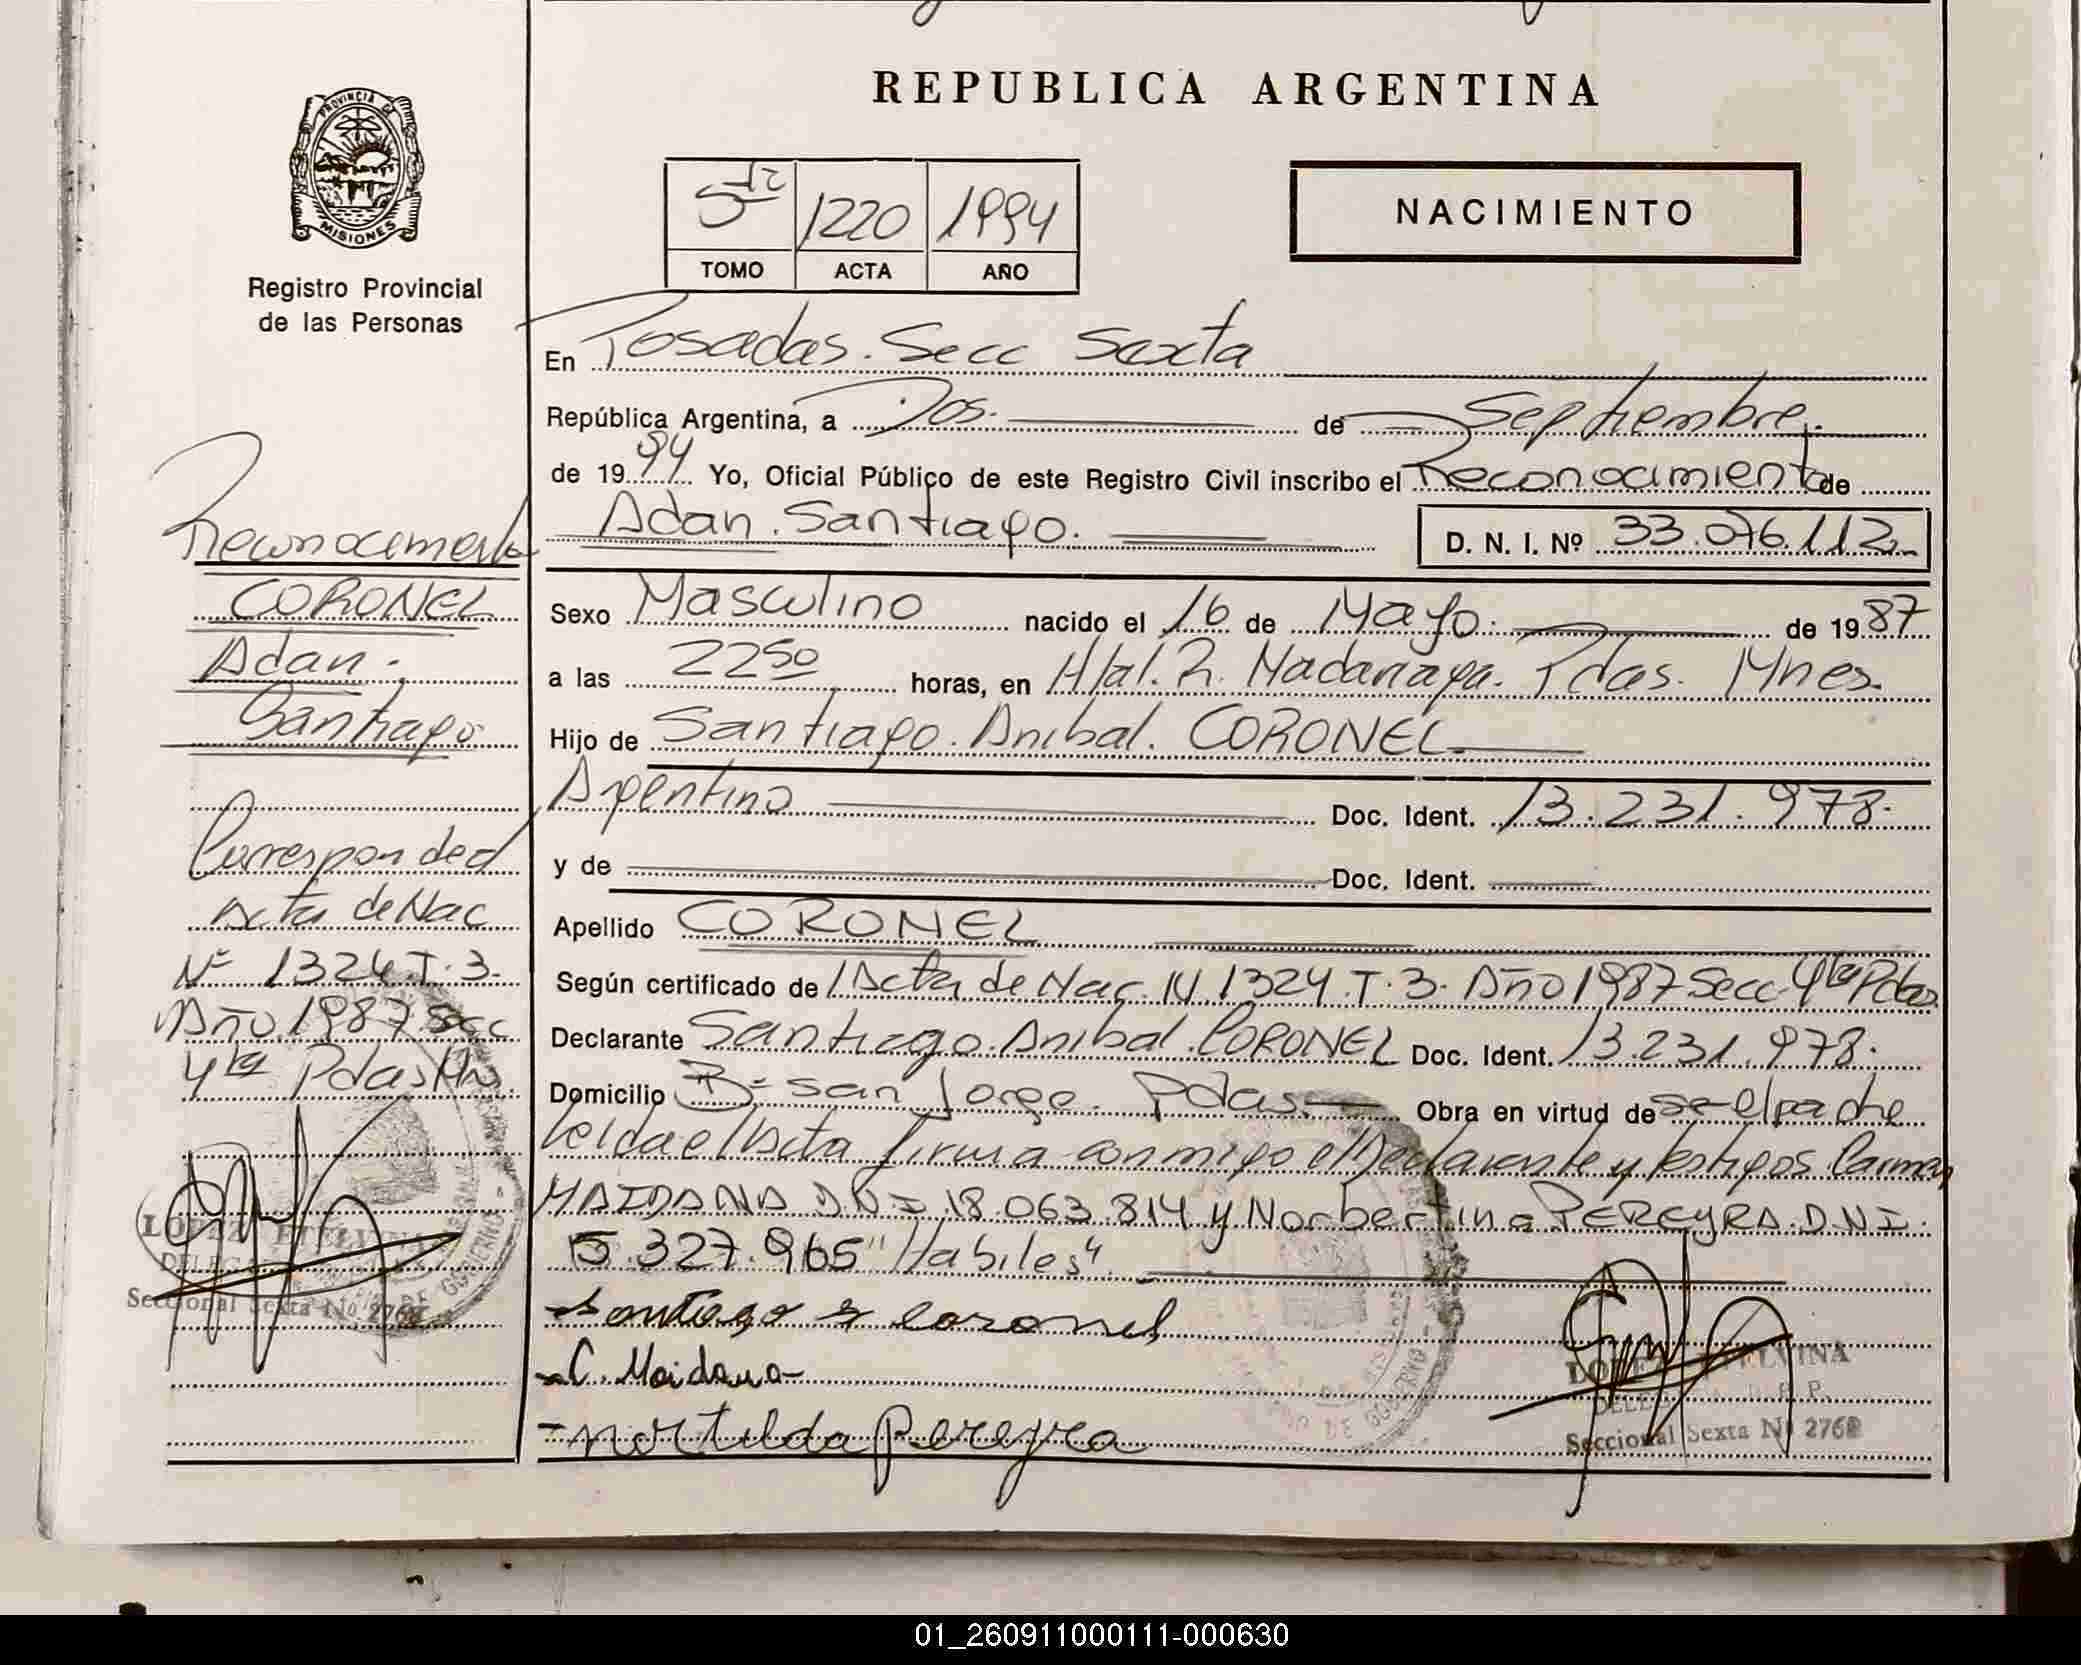 REPUBLICA ARGENTINA
PROVINCIA DE
MISIONES
Registro Provincial
de las Personas
5to 1220 1994
TOMO ACTA AÑO
NACIMIENTO
En Posadas. Secc Sexta
República Argentina, a Dos. de Septiembre.
de 1994 Yo, Oficial Público de este Registro Civil inscribo el Reconocimiento de
Adan. Santiago. D. N. I. Nº 33.076.112
Sexo Masculino nacido el 16 de Mayo. de 1987
a las 22 50 horas, en Htal. R. Madariaga. Pdas. Mnes.
Hijo de Santiago. Anibal. CORONEL
Argentino Doc. Ident. 13.231.978.
y de Doc. Ident.
Apellido CORONEL
Según certificado de Acta de Nac. N 1324. T. 3. Año 1987 Secc 4ta Pdas.
Declarante Santiago. Anibal. CORONEL Doc. Ident. 13.231.978.
Domicilio Bº San Jorge. Pdas. Obra en virtud de ser el padre
leida el Acta firma conmigo el Declarante y testigos. Carmen
MAIDANA D.N.I. 18.063.814 y Norbertina PEREYRA. D.N.I.
5.327.965 "Habiles"
Santiago a coronel
C. Maidana
nortilda Pereyra
LOPEZ ETELVINA
Seccional Sexta Nº 2768
Reconocimiento
CORONEL
Adan.
Santiago
Corresponded
Acta de Nac
Nº 1324. T. 3.
Año. 1987. Secc
4ta Pdas Mn.
LOPEZ ETELVINA
Seccional Sexta No 2768
01_260911000111-000630